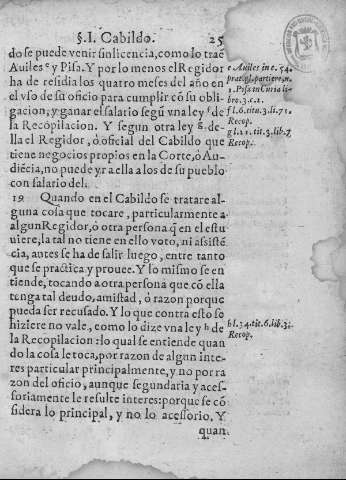 §.I. Cabildo. 25
do se puede venir sin licencia, como lo traē
Auiles e y Pisa. Y por lo menos el Regidor
ha de residia los quatro meses del año en
el vso de su oficio para cumplir cō su obli-
gacion, y ganar el salario segū vna ley f de
la Recopilacion. Y segun otra ley g de-
lla el Regidor, ò oficial del Cabildo que
tiene negocios propios en la Corte, ò Au-
diēcia, no puede yr a ella a los de su pueblo
con salario del.
19 Quando en el Cabildo se tratare al-
guna cosa que tocare, particularmente a
algun Regidor, ò otra persona q̄ en el estu
uiere, la tal no tiene en ello voto, ni assistē
cia, antes se ha de salir luego, entre tanto
que se practica y prouee. Y lo mismo se en
tiende, tocando a otra persona que cō ella
tenga tal deudo, amistad, ò razon porque
pueda ser recusado. Y lo que contra esto se
hiziere no vale, como lo dize vna ley h de
la Recopilacion: lo qual se entiende quan
do la cosa le toca, por razon de algun inte
res particular principalmente, y no por ra
zon del oficio, aunque segundaria y acес-
soriamente le resulte interes: porque se cō
sidera lo principal, y no lo acessorio. Y
quan
e Auiles in c. 54.
prat. gl. partiere, n.
1. Pisa in Curia li-
bro. 3. c. 1.
f l. 6. titu. 3. li. 71.
Recop.
g l. 21. tit. 3. lib. 7
Recop.
h l. 34. tit. 6. lib. 3.
Recop.